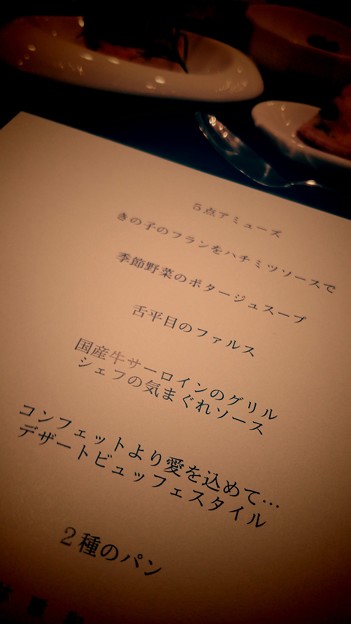 5点アミューズ
きの子のフランをハチミツソースで
季節野菜のポタージュスープ
舌平目のファルス
国産牛サーロインのグリル
シェフの気まぐれソース
コンフェットより愛を込めて…
デザートビュッフェスタイル
2種のパン